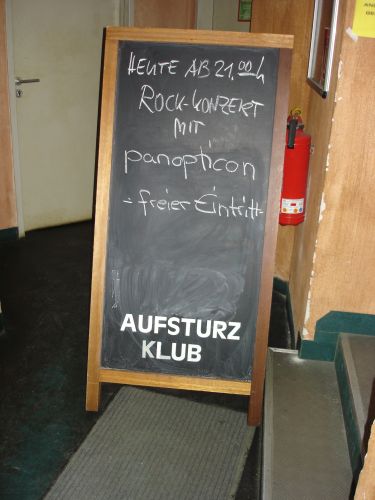 HEUTE AB 21.00h
ROCK-KONZERT
MIT
panopticon
-freier Eintritt-
AUFSTURZ
KLUB